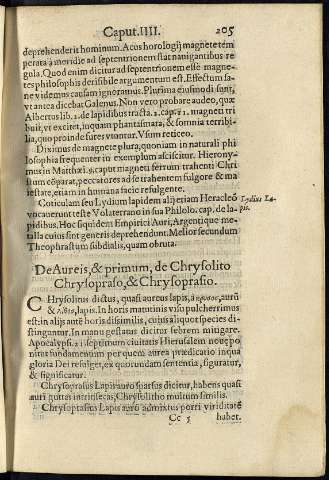 Caput. IIII. 205
deprehenderit hominum. Acus horologij magnete tem
perata à meridie ad septentrionem stat nauigantibus re
gula. Quod enim dicitur ad septentrionem esse magne-
tes philosophis derisibile argumentum est. Effectum sa-
ne videmus causam ignoramus. Plurima eiusmodi sunt,
vt antea dicebat Galenus. Non vero probare audeo, quæ
Albertus lib. 2. de lapidibus tracta. 2. cap. 1. magneti tri
buit, vt excitet, inquam phantasmata, & somnia terribi-
lia, quo proinde fures vtuntur. Vsum reticeo.
Diximus de magnete plura, quoniam in naturali phi
losophia frequenter in exemplum asciscitur. Hierony-
mus in Matthæi. 9. caput magneti ferrum trahenti Chri
stum cõparat, peccatores ad se trahentem fulgore & ma
iestate, etiam in humana facie refulgente.
Coticulam seu Lydium lapidem alij etiam Heracleõ
vocauerunt teste Volaterrano in sua Philolo. cap. de la-
pidibus. Hoc siquidem Empirici Auri, Argentique me-
talla cuius sint generis deprehendunt. Melior secundum
Theophrastum subdialis, quam obruta.
Lydius La-
pis.
De Aureis, & primum, de Chrysolito
Chrysopraso, & Chrysoprasio.
CHrysolitus dictus, quasi aureus lapis, à χρυσος, aurũ
& λιθος, lapis. In horis matutinis visu pulcherrimus
est: in alijs autẽ horis dissimilis, cuius aliquot species di-
stinguntur. In manu gestatus dicitur febrem mitigare.
Apocalypsi. 21. septimum ciuitatis Hierusalem nouę po
nitur fundamentum per quem aurea prædicatio in qua
gloria Dei refulget, ex quorundam sententia, figuratur,
& significatur.
Chrysoprasus Lapis auro suatus dicitur, habens quasi
auri guttas intrinsecas, Chrysolitho multum similis.
Chrysoptasius Lapis auro admixtus porri viriditatẽ
Cc 5 habet.